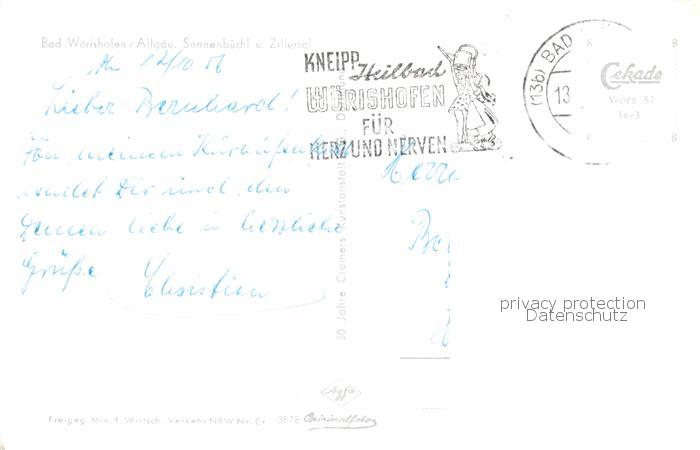 Bad Wörishofen/Allgäu. Sonnenbüchl u. Zillertal
12/10 56
Lieber Bernhard!
Von meinem
sendet Dir und den
Deinen liebe u. herzliche
Grüße
Christian
KNEIPP
Heilbad
WÖRISHOFEN
FÜR
HERZ UND NERVEN
(13b) BAD
13
Cekade
Wörs 57
5673
50 Jahre Cramers Kunstanstalt
Herrn
privacy protection
Datenschutz
Agfa
Freigeg. Min. f. Wirtsch. Verkehr NRW Nr. Cr. 3878 Originalfoto